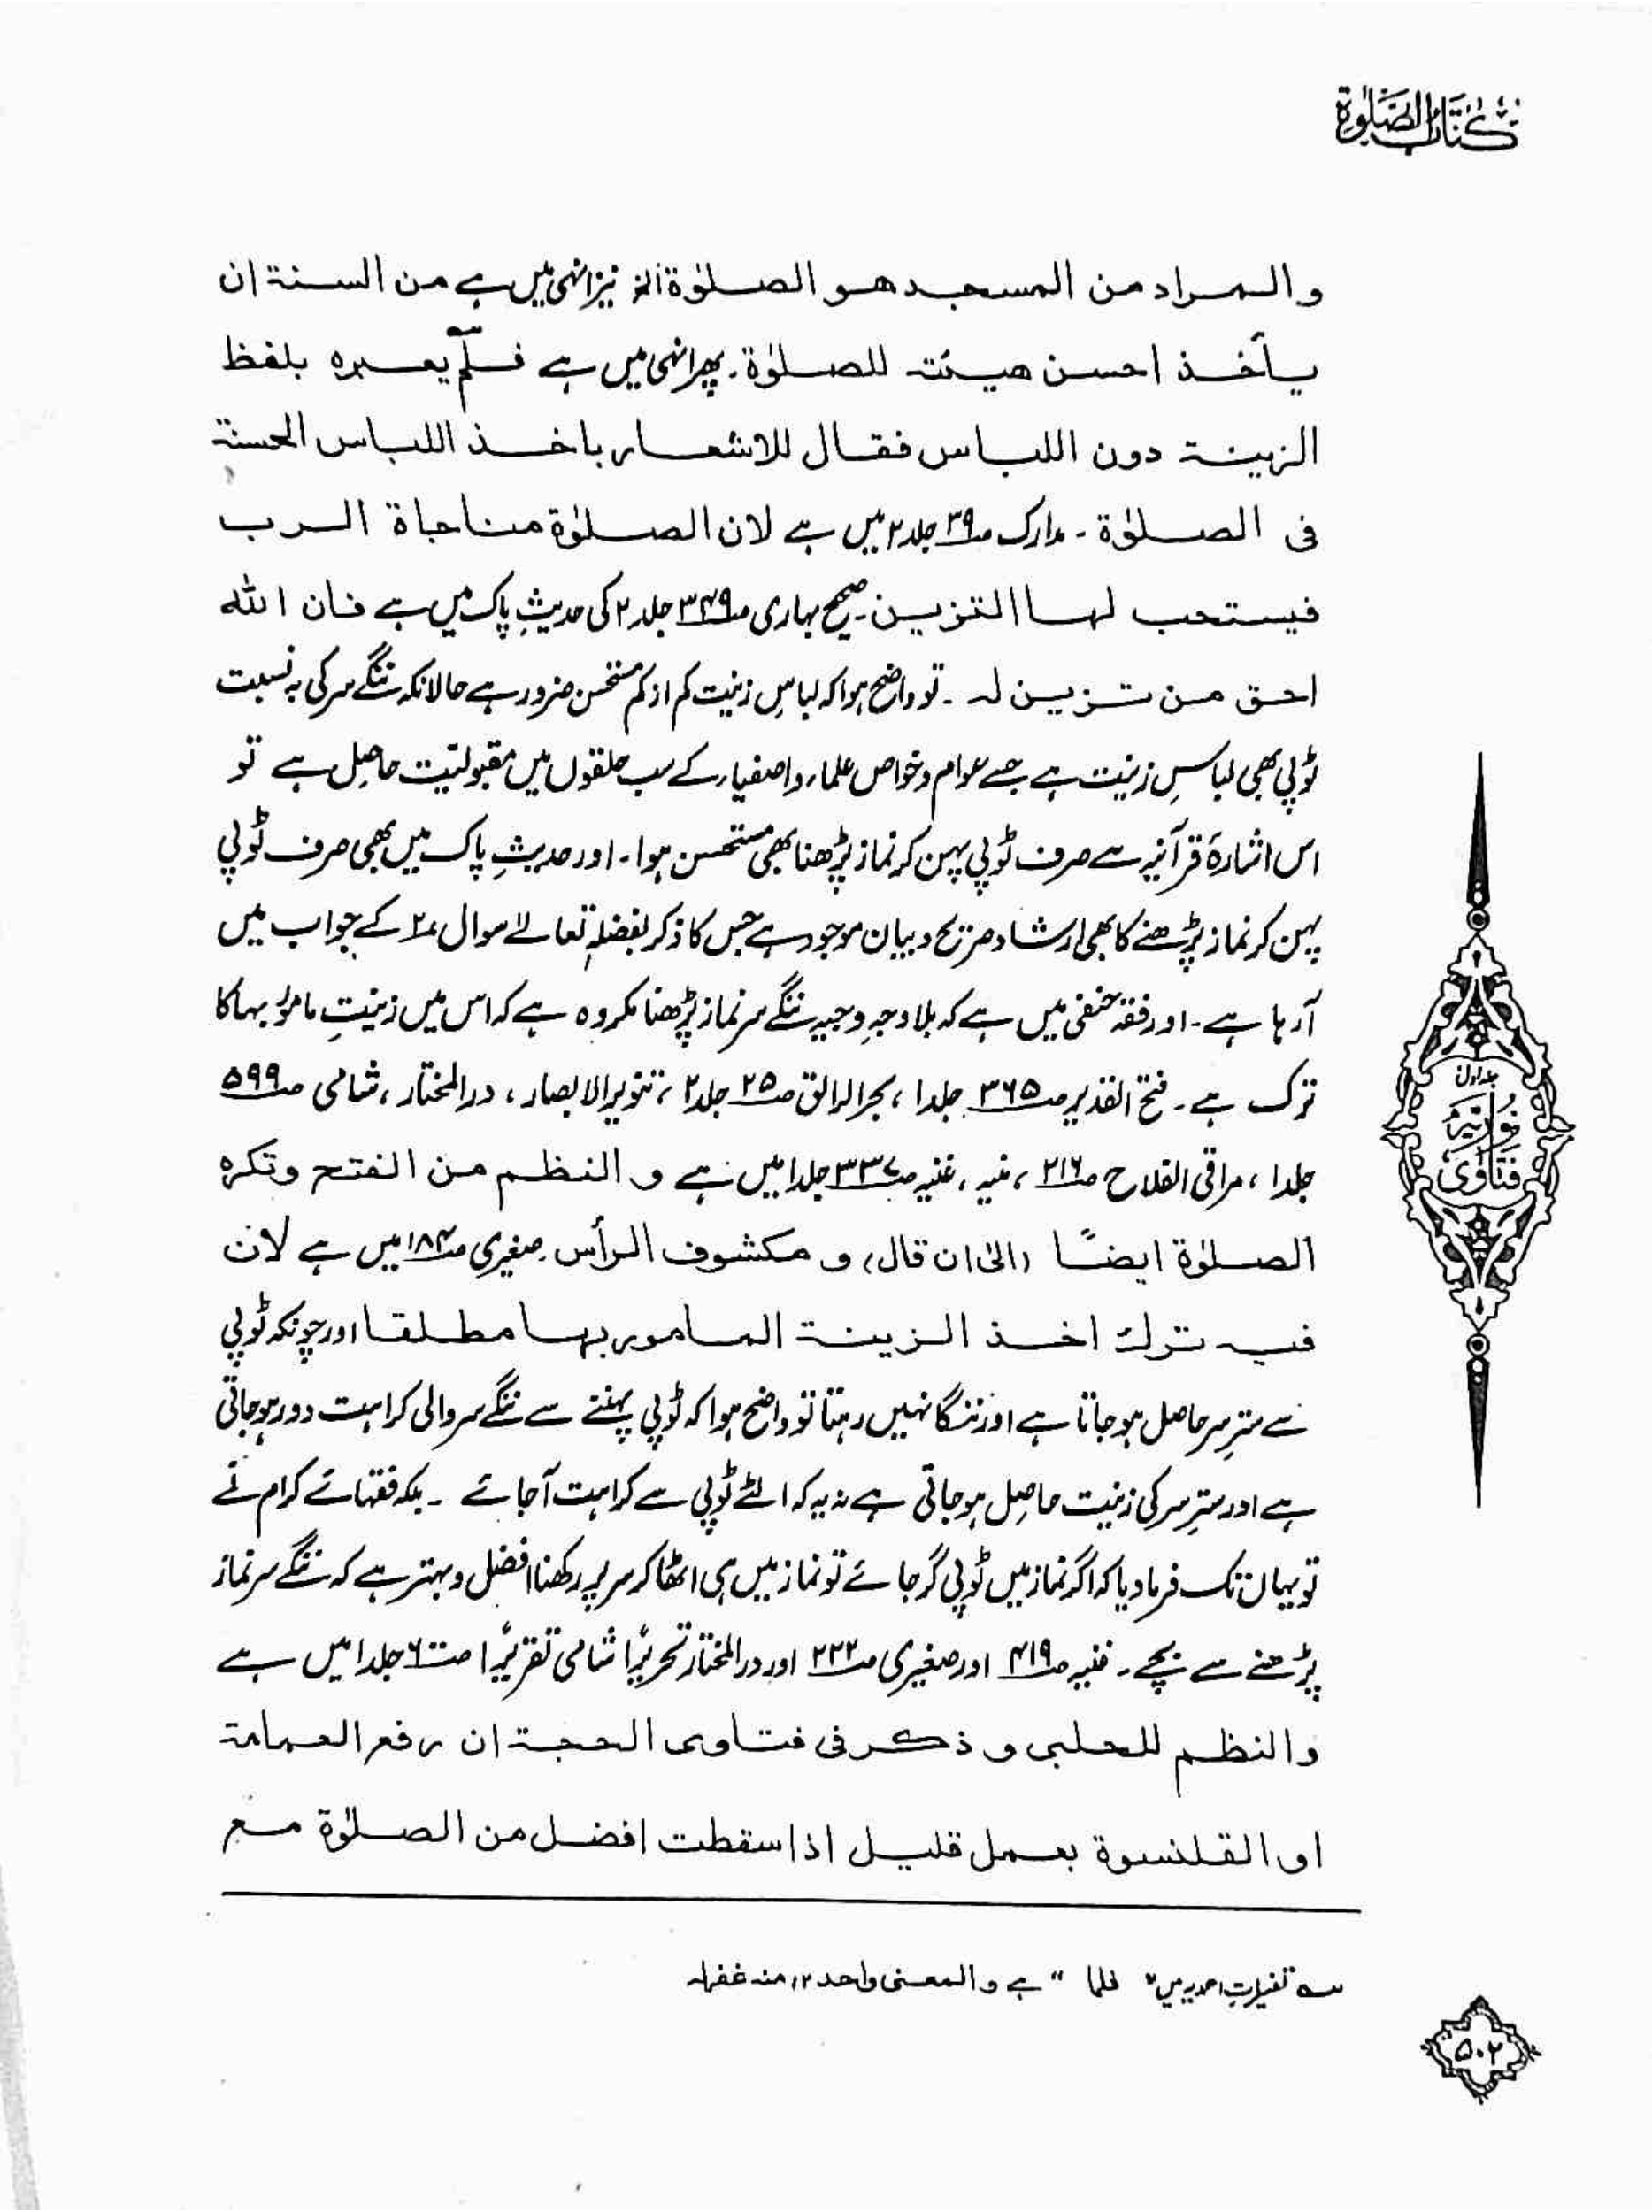 كتاب الصلوة
والمراد من المسجد هو الصلوٰة الخ نیز انہی میں ہے من السنة ان
يأخذ احسن هيئة للصلوٰة۔ پھر انہی میں ہے فلم يعبره بلفظ
الزينة دون اللباس فقال للاشعار باخذ اللباس الحسنة
فى الصلوٰة۔ مدارک ص۳۹ جلد۲ میں ہے لان الصلوٰة مناجاة الرب
فيستحب لها التزين۔ صحیح بہاری ص۳۴۹ جلد۲ کی حدیثِ پاک میں ہے فان الله
احق من تزين له۔ تو واضح ہوا کہ لباسِ زینت کم از کم مستحسن ضرور ہے حالانکہ ننگے سر کی بہ نسبت
ٹوپی بھی لباسِ زینت ہے جسے عوام و خواص علماء و اصفیاء کے سب حلقوں میں مقبولیّت حاصل ہے تو
اس اشارۂ قرآنیہ سے صرف ٹوپی پہن کر نماز پڑھنا بھی مستحسن ہوا۔ اور حدیثِ پاک میں بھی صرف ٹوپی
پہن کر نماز پڑھنے کا بھی ارشاد صریح و بیان موجود ہے جس کا ذکر بفضلہٖ تعالےٰ سوال ۲ کے جواب میں
آرہا ہے۔ اور فقہ حنفی میں ہے کہ بلا وجہِ وجیہ ننگے سر نماز پڑھنا مکروہ ہے کہ اس میں زینتِ مامور بہا کا
ترک ہے۔ فتح القدیر ص۳۶۵ جلد۱، بحر الرائق ص۲۵ جلد۲، تنویر الابصار، در المختار، شامی ص۵۹۹
جلد۱، مراقی الفلاح ص۲۱۶، منیہ، غنیہ ص۳۳۷ جلد۱ میں ہے و النظم من الفتح وتكره
الصلوٰة ايضًا (الیٰ ان قال) و مكشوف الرأس۔ صغیری ص۱۸۴ میں ہے لان
فيه ترك اخذ الزينة المامور بها مطلقا اور چونکہ ٹوپی
سے سترِ سر حاصل ہو جاتا ہے اور ننگا نہیں رہتا تو واضح ہوا کہ ٹوپی پہننے سے ننگے سر والی کراہت دور ہو جاتی
ہے اور سترِ سر کی زینت حاصل ہو جاتی ہے نہ یہ کہ الٹے ٹوپی سے کراہت آجائے۔ بلکہ فقہائے کرام نے
تو یہاں تک فرما دیا کہ اگر نماز میں ٹوپی گر جائے تو نماز میں ہی اٹھا کر سر پر رکھنا افضل و بہتر ہے کہ ننگے سر نماز
پڑھنے سے بچے۔ غنیہ ص۴۱۹ اور صغیری ص۲۲۲ اور در المختار تحریرًا شامی تقریرًا ص۶۰۰ جلد۱ میں ہے
والنظم للحلبى و ذكر فى فتاوى الحجة ان رفع العمامة
او القلنسوة بعمل قليل اذا سقطت افضل من الصلوٰة مع
سہ تفسیراتِ احمدیہ میں " فلما " ہے و المعنى واحد ۱۲ منہ غفرلہ
جلد اول
فتاوىٰ نوريّہ
۵۰۲